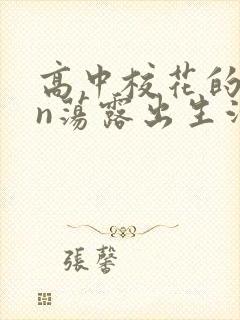 高中校花的
n荡露出生活
張馨